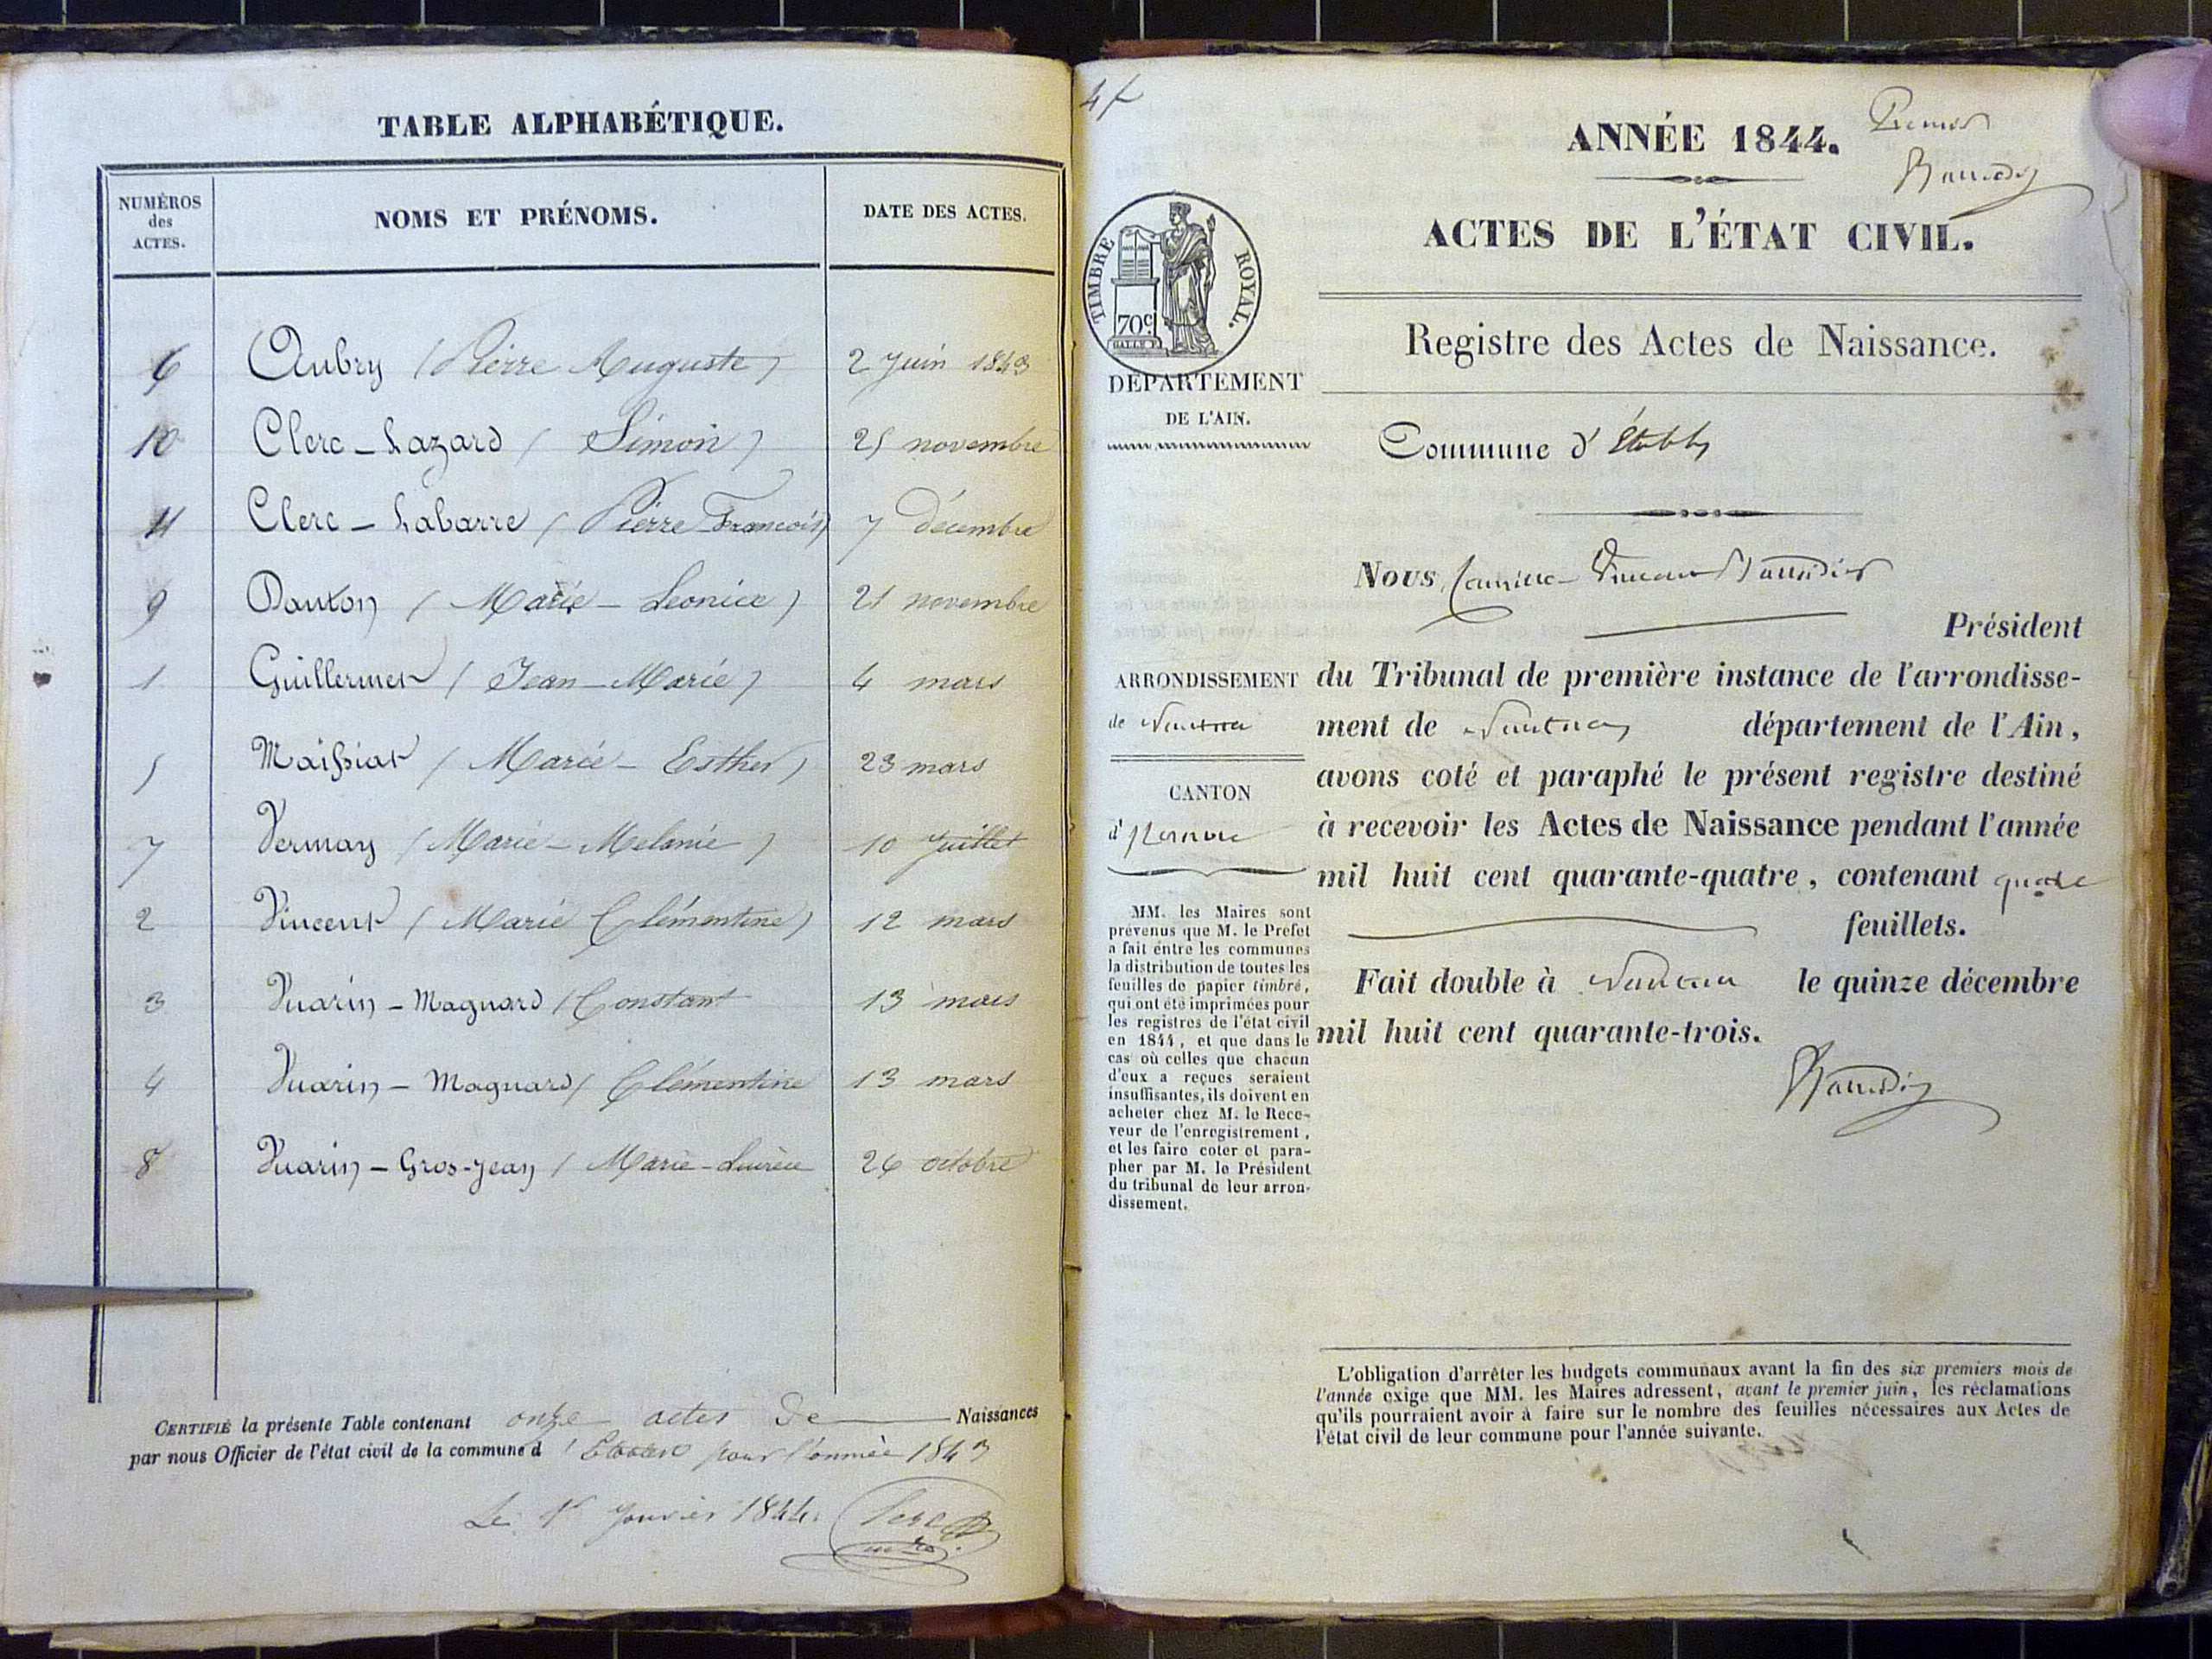 TABLE ALPHABÉTIQUE.
NUMÉROS des ACTES. NOMS ET PRÉNOMS. DATE DES ACTES.
6 Aubry (Pierre Auguste) 2 Juin 1843
10 Clerc - Lazard (Simon) 25 novembre
11 Clerc - Labarre (Pierre François) 7 décembre
9 Danton (Marie - Leonice) 21 novembre
1 Guillermet (Jean-Marie) 4 mars
5 Maissiat (Marie - Esther) 23 mars
7 Vermay (Marie - Melanie) 10 Juillet
2 Vincent (Marie Clémentine) 12 mars
3 Vuarin - Magnard (Constant 13 mars
4 Vuarin - Magnard (Clémentine 13 mars
8 Vuarin - Gros-Jean (Marie- 26 octobre
CERTIFIÉ la présente Table contenant onze actes de Naissances
par nous Officier de l'état civil de la commune d' pour l'année 1843
Le 1er Janvier 1844. Clerc
4f
Premier
ANNÉE 1844.
ACTES DE L'ÉTAT CIVIL.
TIMBRE ROYAL.
70c
Registre des Actes de Naissance.
DÉPARTEMENT
DE L'AIN.
Commune d'
Nous
Président
ARRONDISSEMENT
de Nantua
CANTON
d'
du Tribunal de première instance de l'arrondisse-
ment de Nantua département de l'Ain,
avons coté et paraphé le présent registre destiné
à recevoir les Actes de Naissance pendant l'année
mil huit cent quarante-quatre, contenant quatre
feuillets.
Fait double à Nantua le quinze décembre
mil huit cent quarante-trois.
MM. les Maires sont
prévenus que M. le Préfet
a fait éntre les communes
la distribution de toutes les
feuilles de papier timbré,
qui ont été imprimées pour
les registres de l'état civil
en 1844, et que dans le
cas où celles que chacun
d'eux a reçues seraient
insuffisantes, ils doivent en
acheter chez M. le Rece-
veur de l'enregistrement,
et les faire coter et para-
pher par M. le Président
du tribunal de leur arron-
dissement.
L'obligation d'arrêter les budgets communaux avant la fin des six premiers mois de
l'année exige que MM. les Maires adressent, avant le premier juin, les réclamations
qu'ils pourraient avoir à faire sur le nombre des feuilles nécessaires aux Actes de
l'état civil de leur commune pour l'année suivante.